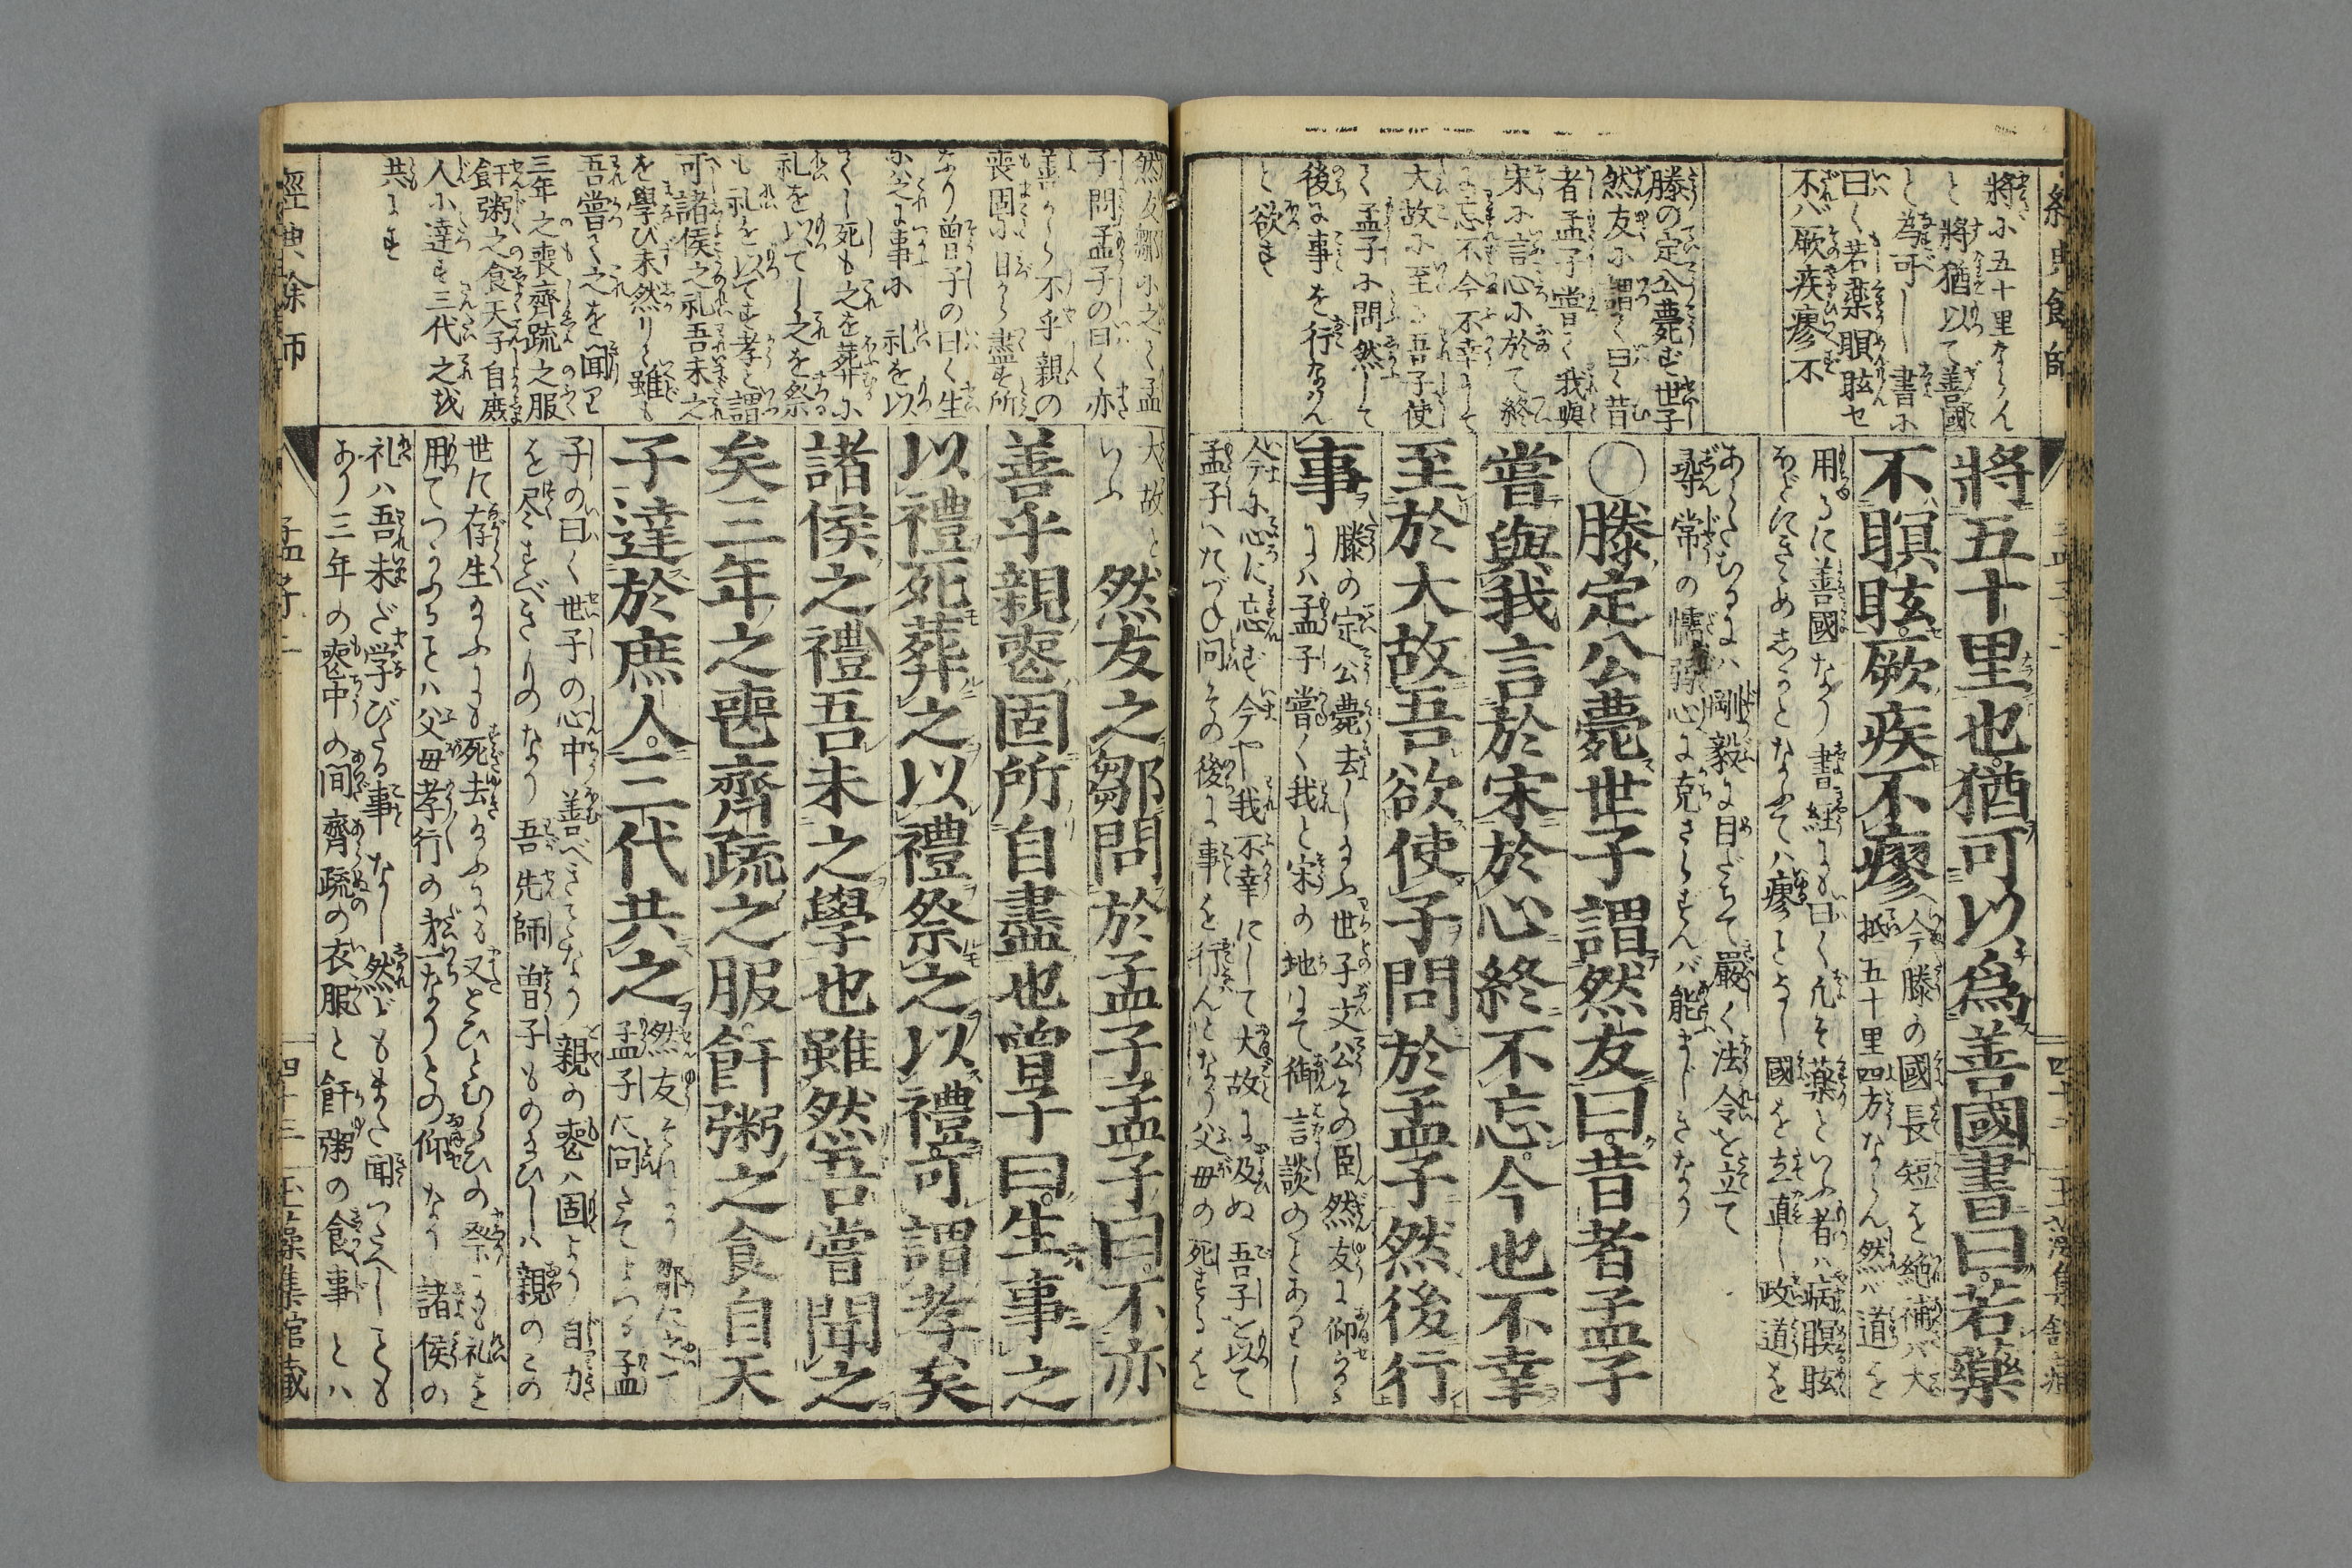 將に五十里ならん
と將猶以て善國
と為可し書に
曰く若薬瞑眩せ
不ハ厥疾瘳不
滕の定公薨ず世子
然友に謂て曰く昔
者孟子嘗て我與
宋に言心に於て終
に忘不今不幸にして
大故に至る吾子使
て孟子に問然して
後に事を行なん
と欲す
將五十里也猶可以為善國書曰若藥
不瞑眩厥疾不瘳
今滕の國長短を絶補バ大
抵五十里四方ならん然バ道を
用るに善國なり書經にも曰く凡そ藥といふ者ハ病瞑眩
瘳となし國を立直し政道を
剛毅に目だちて嚴く法令を立て
尋常の懦弱心に克さらずんバ能まじきなり
○滕定公薨世子謂然友曰昔者孟子
嘗與我言於宋於心終不忘今也不幸
至於大故吾欲使子問於孟子然後行
事
滕の定公薨去しまふ世子文公その臣然友に仰らる
にハ孟子嘗く我と宋の地にて御言談のことありし
今に心に忘ず今や我不幸にして大故に及ぬ吾子を以て
孟子へたづね問その後に事を行んとなり父母の死するを
然友鄒に之て孟
子問孟子の曰く亦
善からん不乎親の
喪固に自から盡す所
なり曽子の曰く生
に之に事に礼を以
てし死も之を葬に
礼を以てし之を祭
も礼を以てす孝と謂
可諸侯之礼吾未之
を學び未然りと雖も
吾嘗て之を聞り
三年之喪齊疏之服
飦粥之食天子自庶
人に達す三代之を
共にす
大故と
いふ
然友之鄒問於孟子孟子曰不亦
善乎親喪固所自盡也曽子曰生事之
以禮死葬之以禮祭之以禮可謂孝矣
諸侯之禮吾未之學也雖然吾嘗聞之
矣三年之喪齊疏之服飦粥之食自天
子達於庶人三代共之
然友それより鄒に之て
孟子に問さてよつる孟
子の曰く世子の心中善べきことなり親の喪ハ固より自力
を尽すべきものなり吾先師曽子ものたひしハ親のこの
世に存生たまふにも死去たまふにも又とひとむらひの祭にも礼を
用てつかふることハ父母孝行の第一なりとの仰なり諸侯の
礼ハ吾未だ学びざる事なし然ども未だ聞つたへしことも
あり三年の喪中の間齊疏の衣服と飦粥の食事とハ
經典餘師
孟子二
四十三
玉藻集館藏